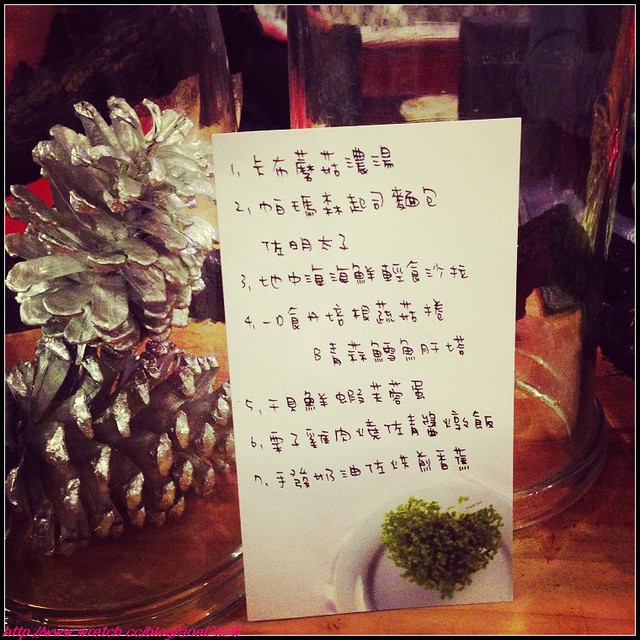 1. 卡布蘑菇濃湯
2. 帕瑪森起司麵包
佐明太子
3. 地中海海鮮輕食沙拉
4. 一口食A培根蔬菇捲
B青蒜鱈魚肝塔
5. 干貝鮮蝦芙蓉蛋
6. 栗子雞肉燒佐青醬燉飯
7. 手發奶油佐烘煎香蕉